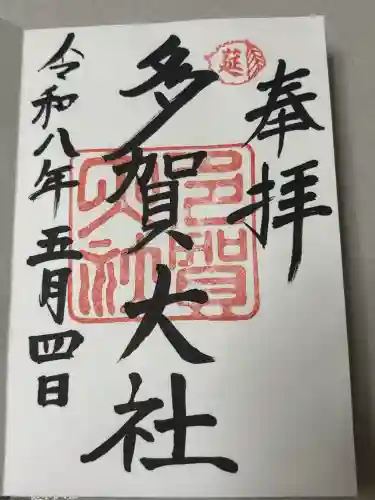 奉拝
延
多賀大社
多賀大社
令和八年五月四日